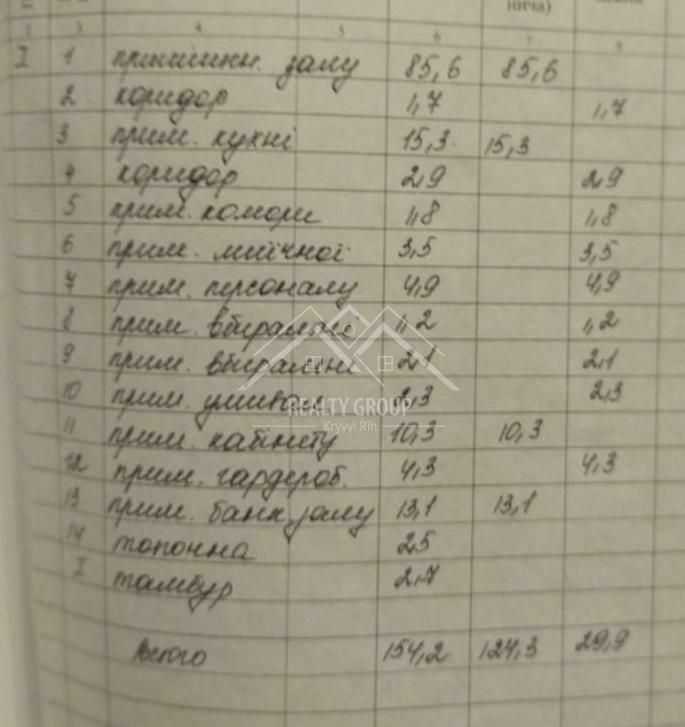 нича)
2 3 4 5 6 7 8
I 1 приміщен. залу 85,6 85,6
2 коридор 1,7 1,7
3 прим. кухні 15,3 15,3
4 коридор 2,9 2,9
5 прим. комори 1,8 1,8
6 прим. миїчної 3,5 3,5
7 прим. персоналу 4,9 4,9
8 прим. вбиральні 1,2 1,2
9 прим. вбиральні 2,1 2,1
10 прим. умиван 2,3 2,3
REALTY GROUP
Kryvyi Rih
11 прим. кабінету 10,3 10,3
12 прим. гардероб. 4,3 4,3
13 прим. банк. залу 13,1 13,1
14 топочна 2,5
I тамбур 2,7
Всього 154,2 124,3 29,9